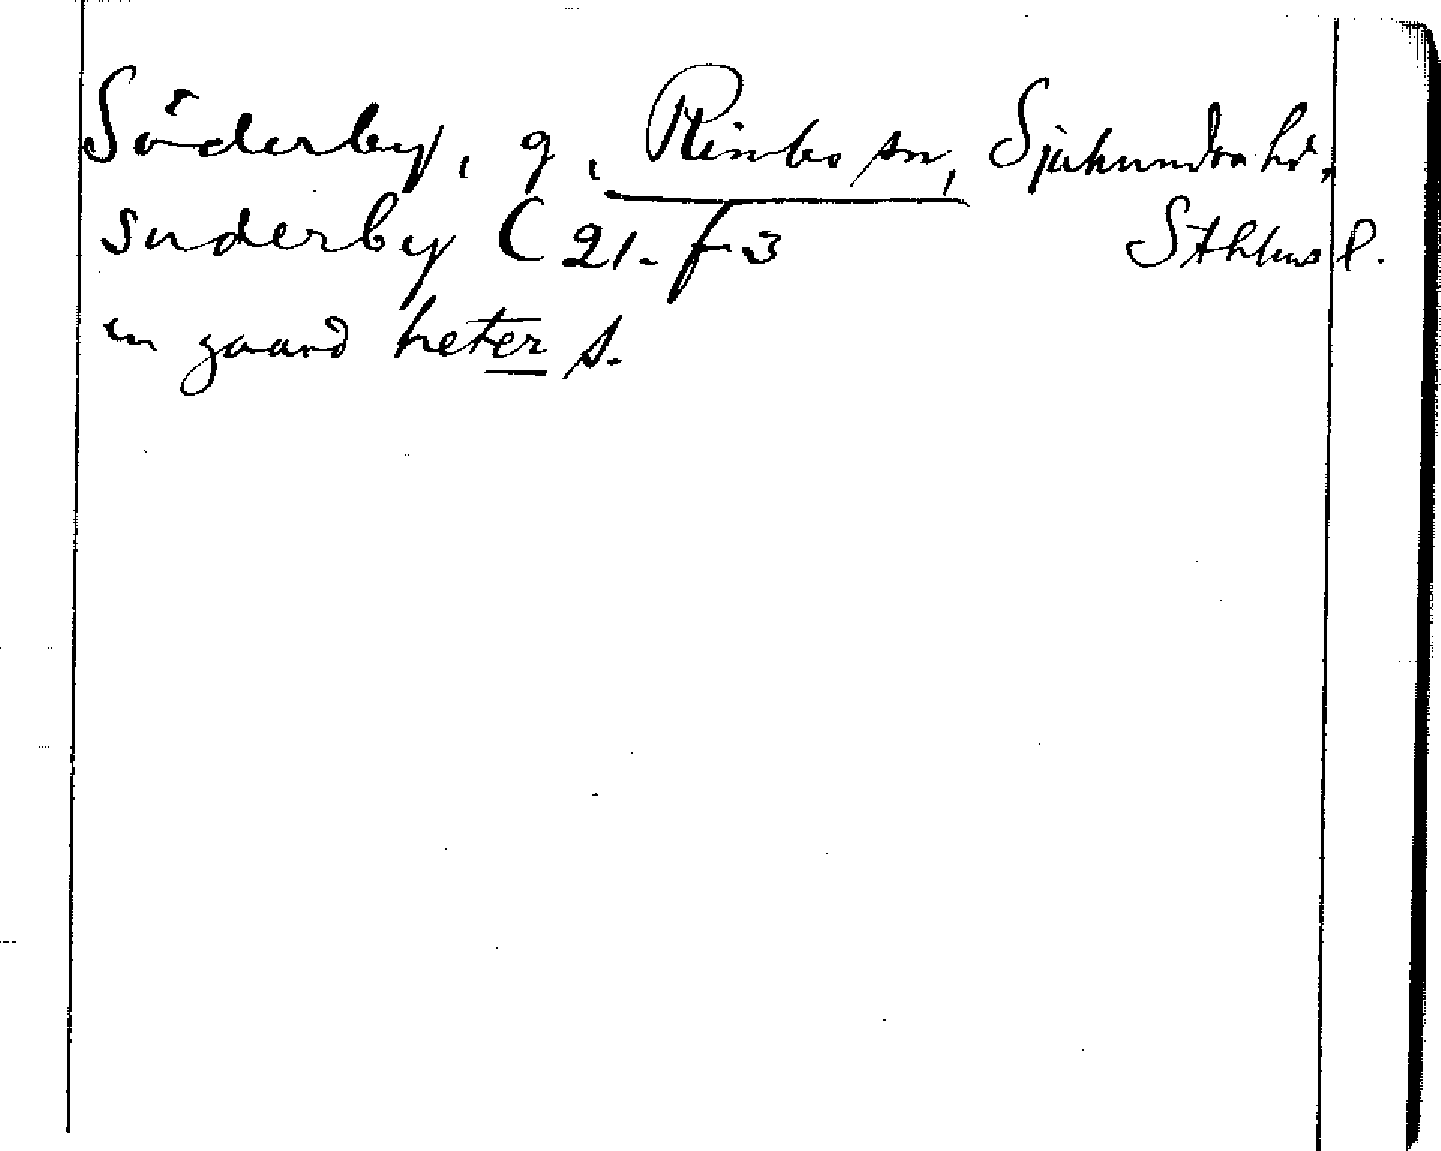 Söderby, g, Rimbo sn, Sjuhundra hd,
Sthlms l.
suderby C 21. f 3
en gaard heter s.